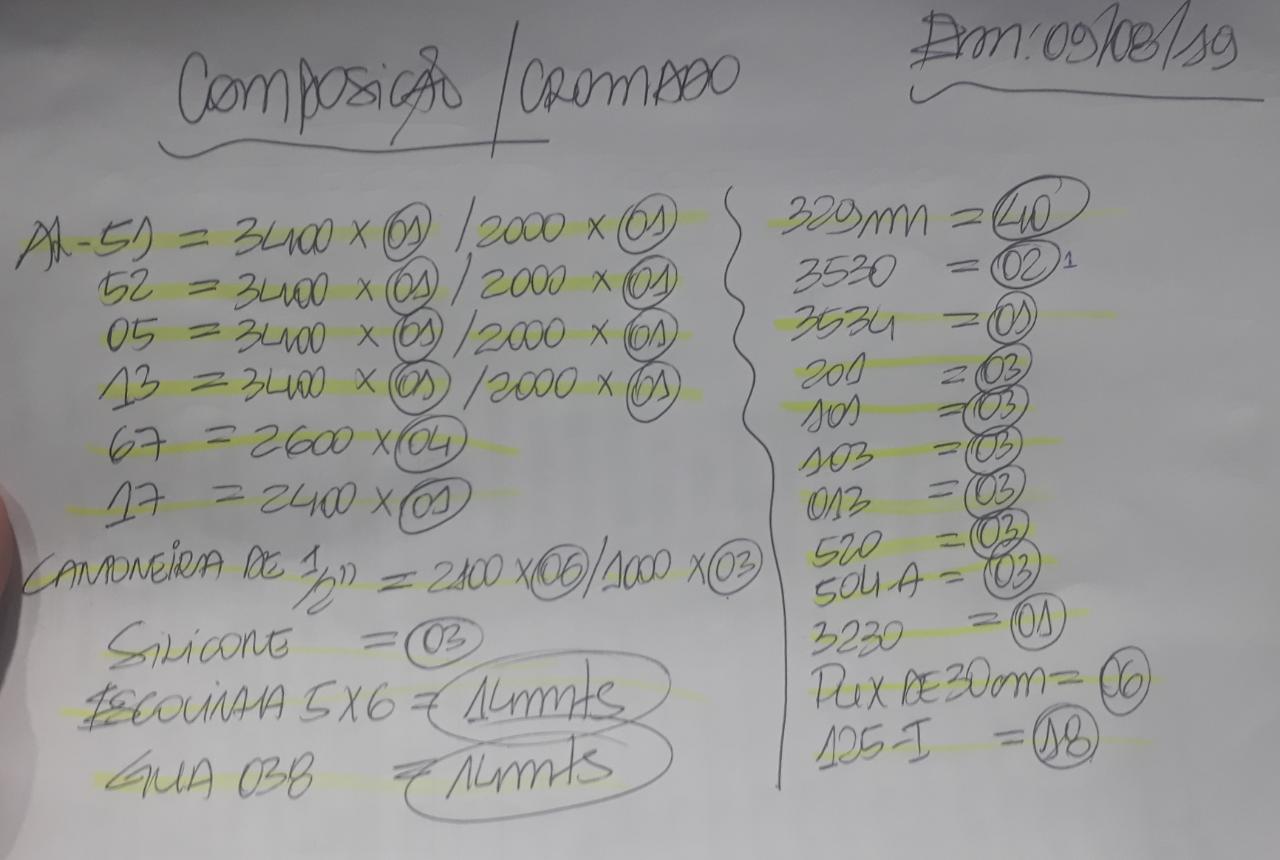 Composição / CROMADO
Em: 09/08/19
AL-51 = 3400 x 01 / 2000 x 01
52 = 3400 x 01 / 2000 x 01
05 = 3400 x 01 / 2000 x 01
13 = 3400 x 01 / 2000 x 01
67 = 2600 x 04
17 = 2400 x 01
CANTONEIRA DE 1/2" = 2100 x 06 / 1000 x 03
SILICONE = 03
ESCOVINHA 5x6 = 14mts
GUIA 038 = 14mts
329mm = 40
3530 = 02 1
3534 = 01
201 = 03
101 = 03
103 = 03
013 = 03
520 = 03
504-A = 03
3230 = 01
Pux DE 30cm = 06
125-I = 18